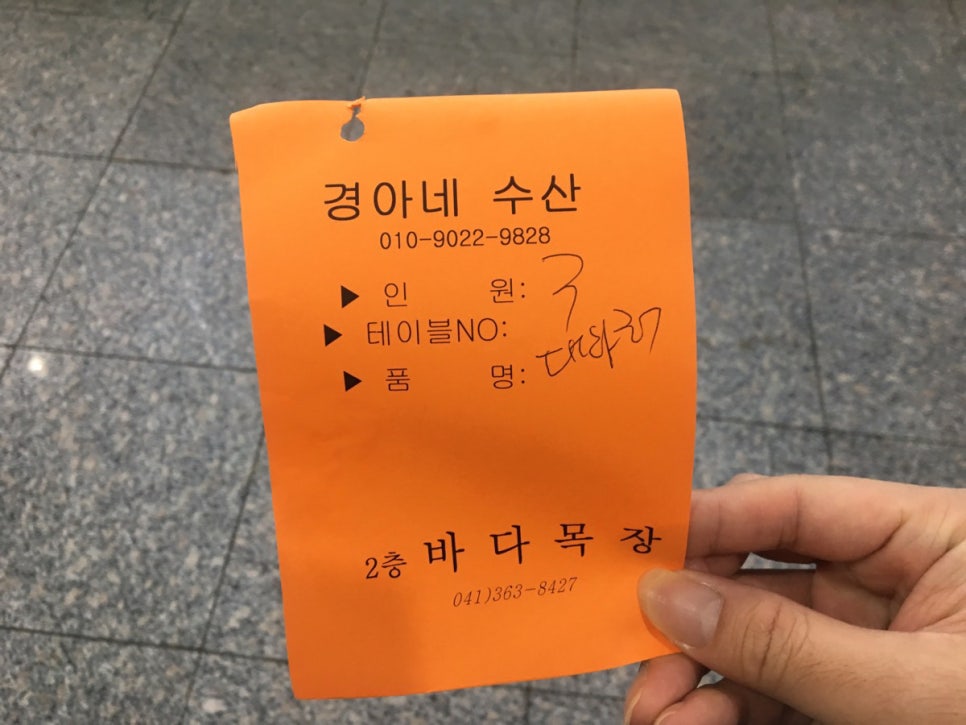 경아네 수산
010-9022-9828
▶ 인 원: 3
▶ 테이블NO:
▶ 품 명:
2층 바다목장
041)363-8427